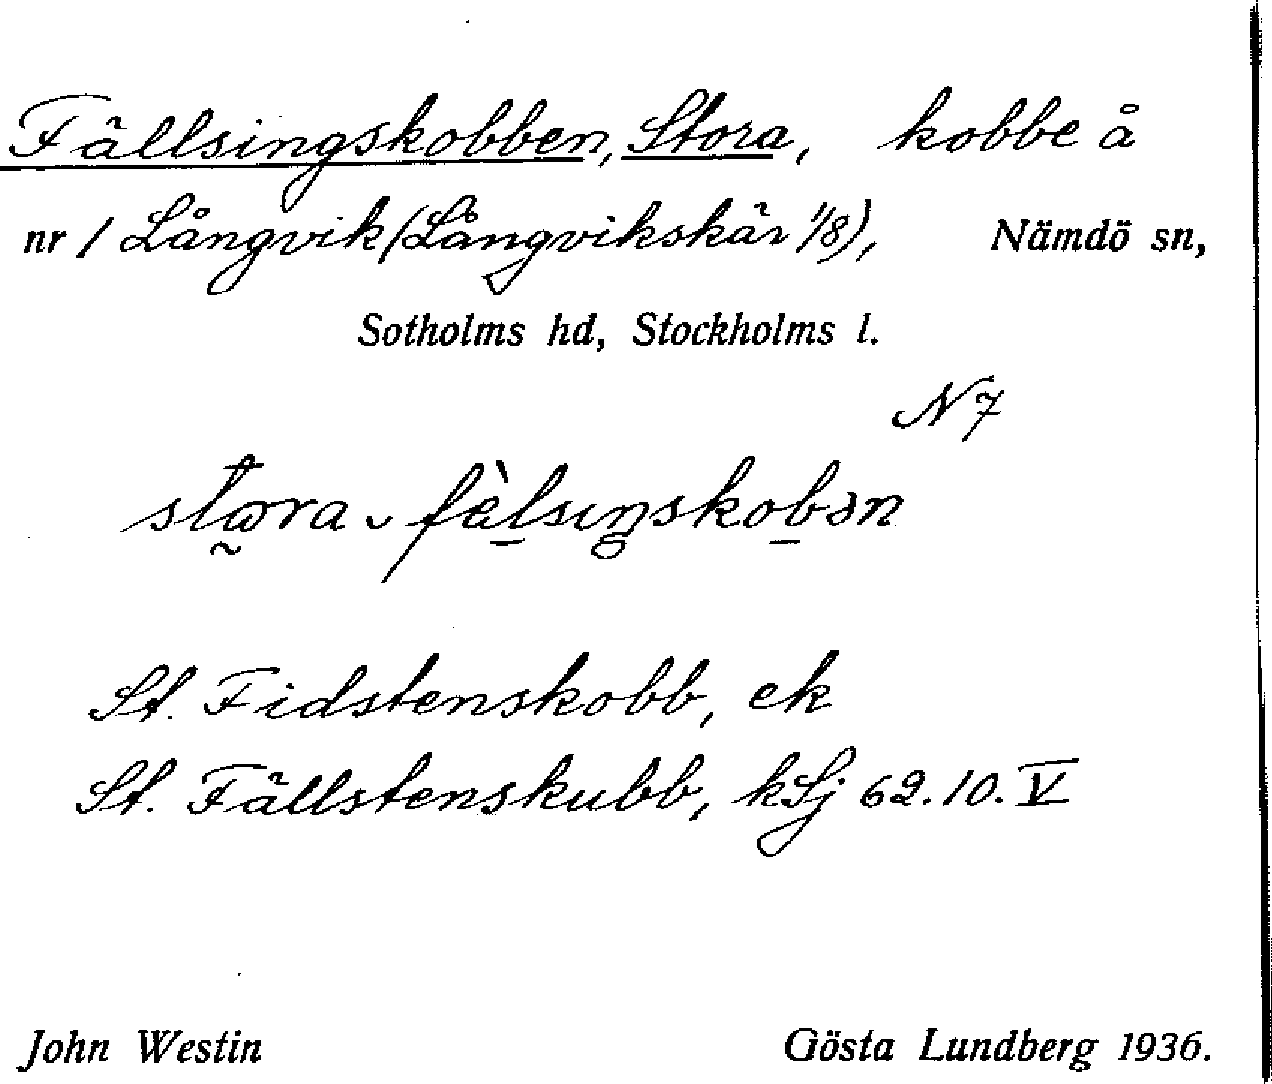 Fällsingskobben, Stora, kobbe å
nr 1 Långvik (Långvikskär 1/8), Nämdö sn,
Sotholms hd, Stockholms l.
N 7
stora ᴗ fàlsıŋskobən
St. Fidstenskobb, ek
St. Fällstenskubb, kSj 62.10. V
John Westin Gösta Lundberg 1936.